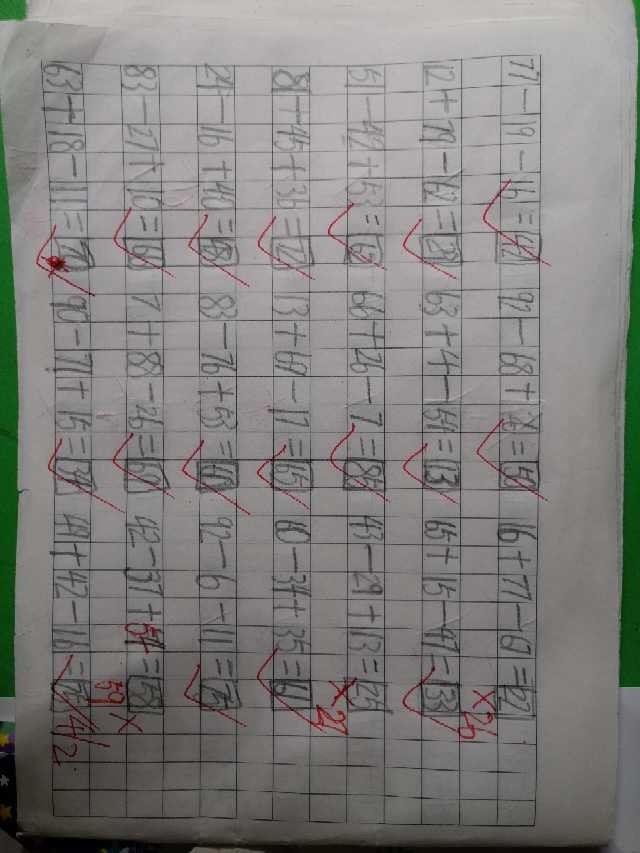 77-19-16=42 92-68+26=50 16+77-67=22 ×26
12+79-62=29 63+4-54=13 65+15-47=33
51-42+53=62 66+26-7=85 43-29+13=25 ×27
81-45+36=72 13+69-17=65 60-34+35=61
24-16+40=48 83-76+53=60 92-6-11=75
83-27+10=66 7+88-26=69 42-37+54=58 ×59
63+18-11=70 90-71+15=34 49+42-16=75 4/2